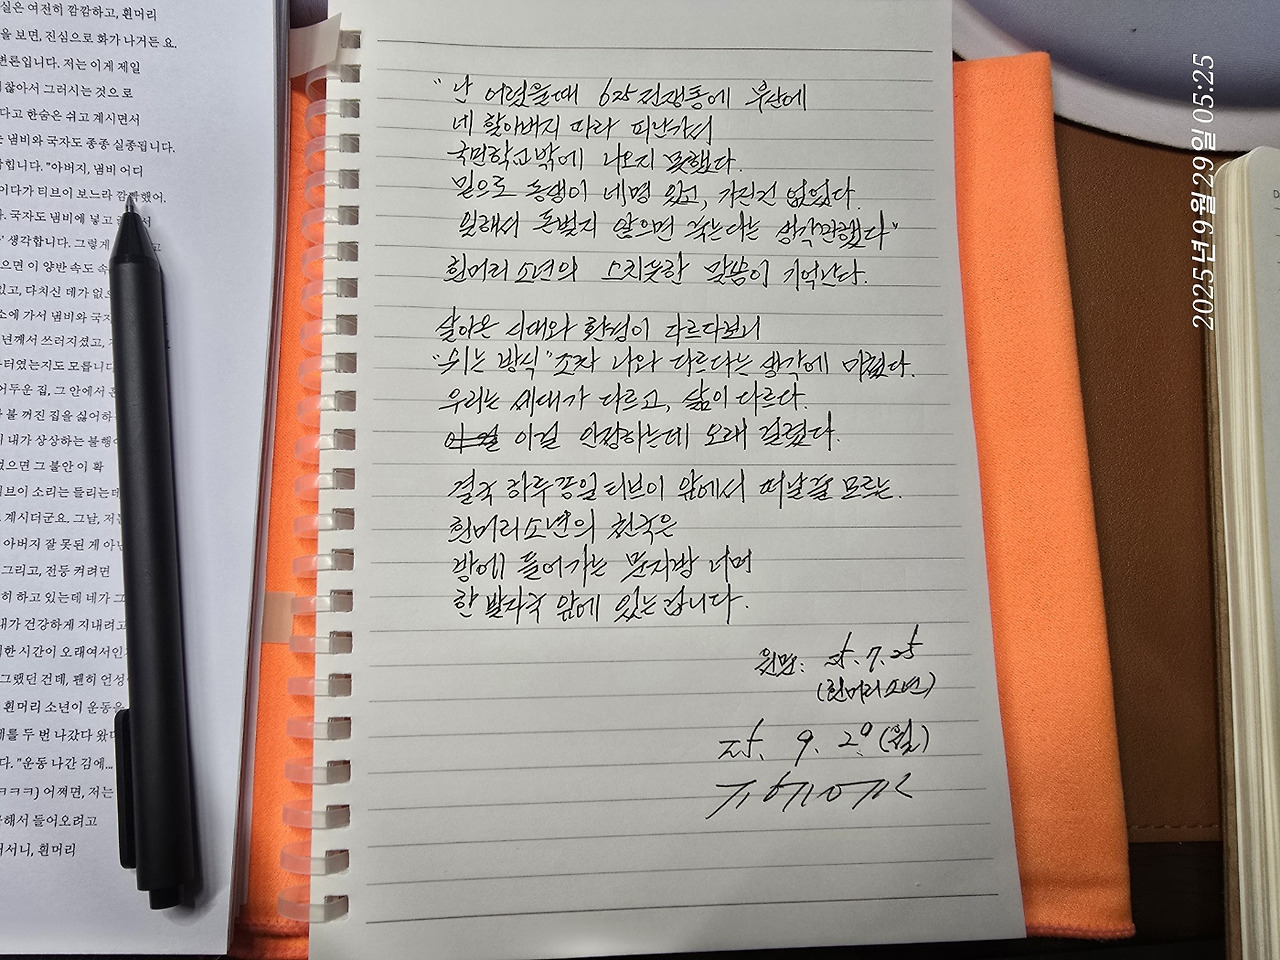 실은 여전히 깜깜하고, 흰머리
을 보면, 진심으로 화가 나거든 요.
변론입니다. 저는 이게 제일
귀찮아서 그러시는 것으로
다고 한숨은 쉬고 계시면서
냄비와 국자도 종종 실종됩니다.
합니다. "아버지, 냄비 어디
이다가 티브이 보느라 깜빡했어.
국자도 냄비에 넣고
생각합니다. 그렇게
으면 이 양반 속도 속
있고, 다치신 데가 없으
소에 가서 냄비와 국자
년께서 쓰러지셨고,
터였는지도 모릅니다
어두운 집, 그 안에서
불 꺼진 집을 싫어하
내가 상상하는 불행이
었으면 그 불안이 확
브이 소리는 들리는데
계시더군요. 그날, 저는
아버지 잘 못된 게 아닌
그리고, 전등 켜려면
히 하고 있는데 네가 그
내가 건강하게 지내려고
한 시간이 오래여서인지
그랬던 건데, 괜히 언성
흰머리 소년이 운동을
를 두 번 나갔다 왔다
다. "운동 나간 김에...
ㅋㅋㅋ) 어쩌면, 저는
해서 들어오려고
서니, 흰머리
"난 어렸을때 625전쟁통에 부산에
네 할아버지 따라 피난가서
국민학교밖에 나오지 못했다.
밑으로 동생이 네명 있고, 가진건 없었다.
원해서 돈벌지 않으면 죽는다는 생각만했다"
흰머리소년의 스치듯한 말씀이 기억난다.
살아온 시대와 환경이 다르다보니
"쉬는 방식"조차 나와 다르다는 생각에 미쳤다.
우리는 세대가 다르고, 삶이 다르다.
이걸 인정하는데 오래 걸렸다.
결국 하루종일 티브이 앞에서 떠날줄 모르는.
흰머리소년의 천국은
방에 들어가는 문지방 너머
한 발자국 앞에 있는겁니다.
원문: 25.7.25
(흰머리소년)
25. 9. 29(월)
2025년 9월 29일 05:25